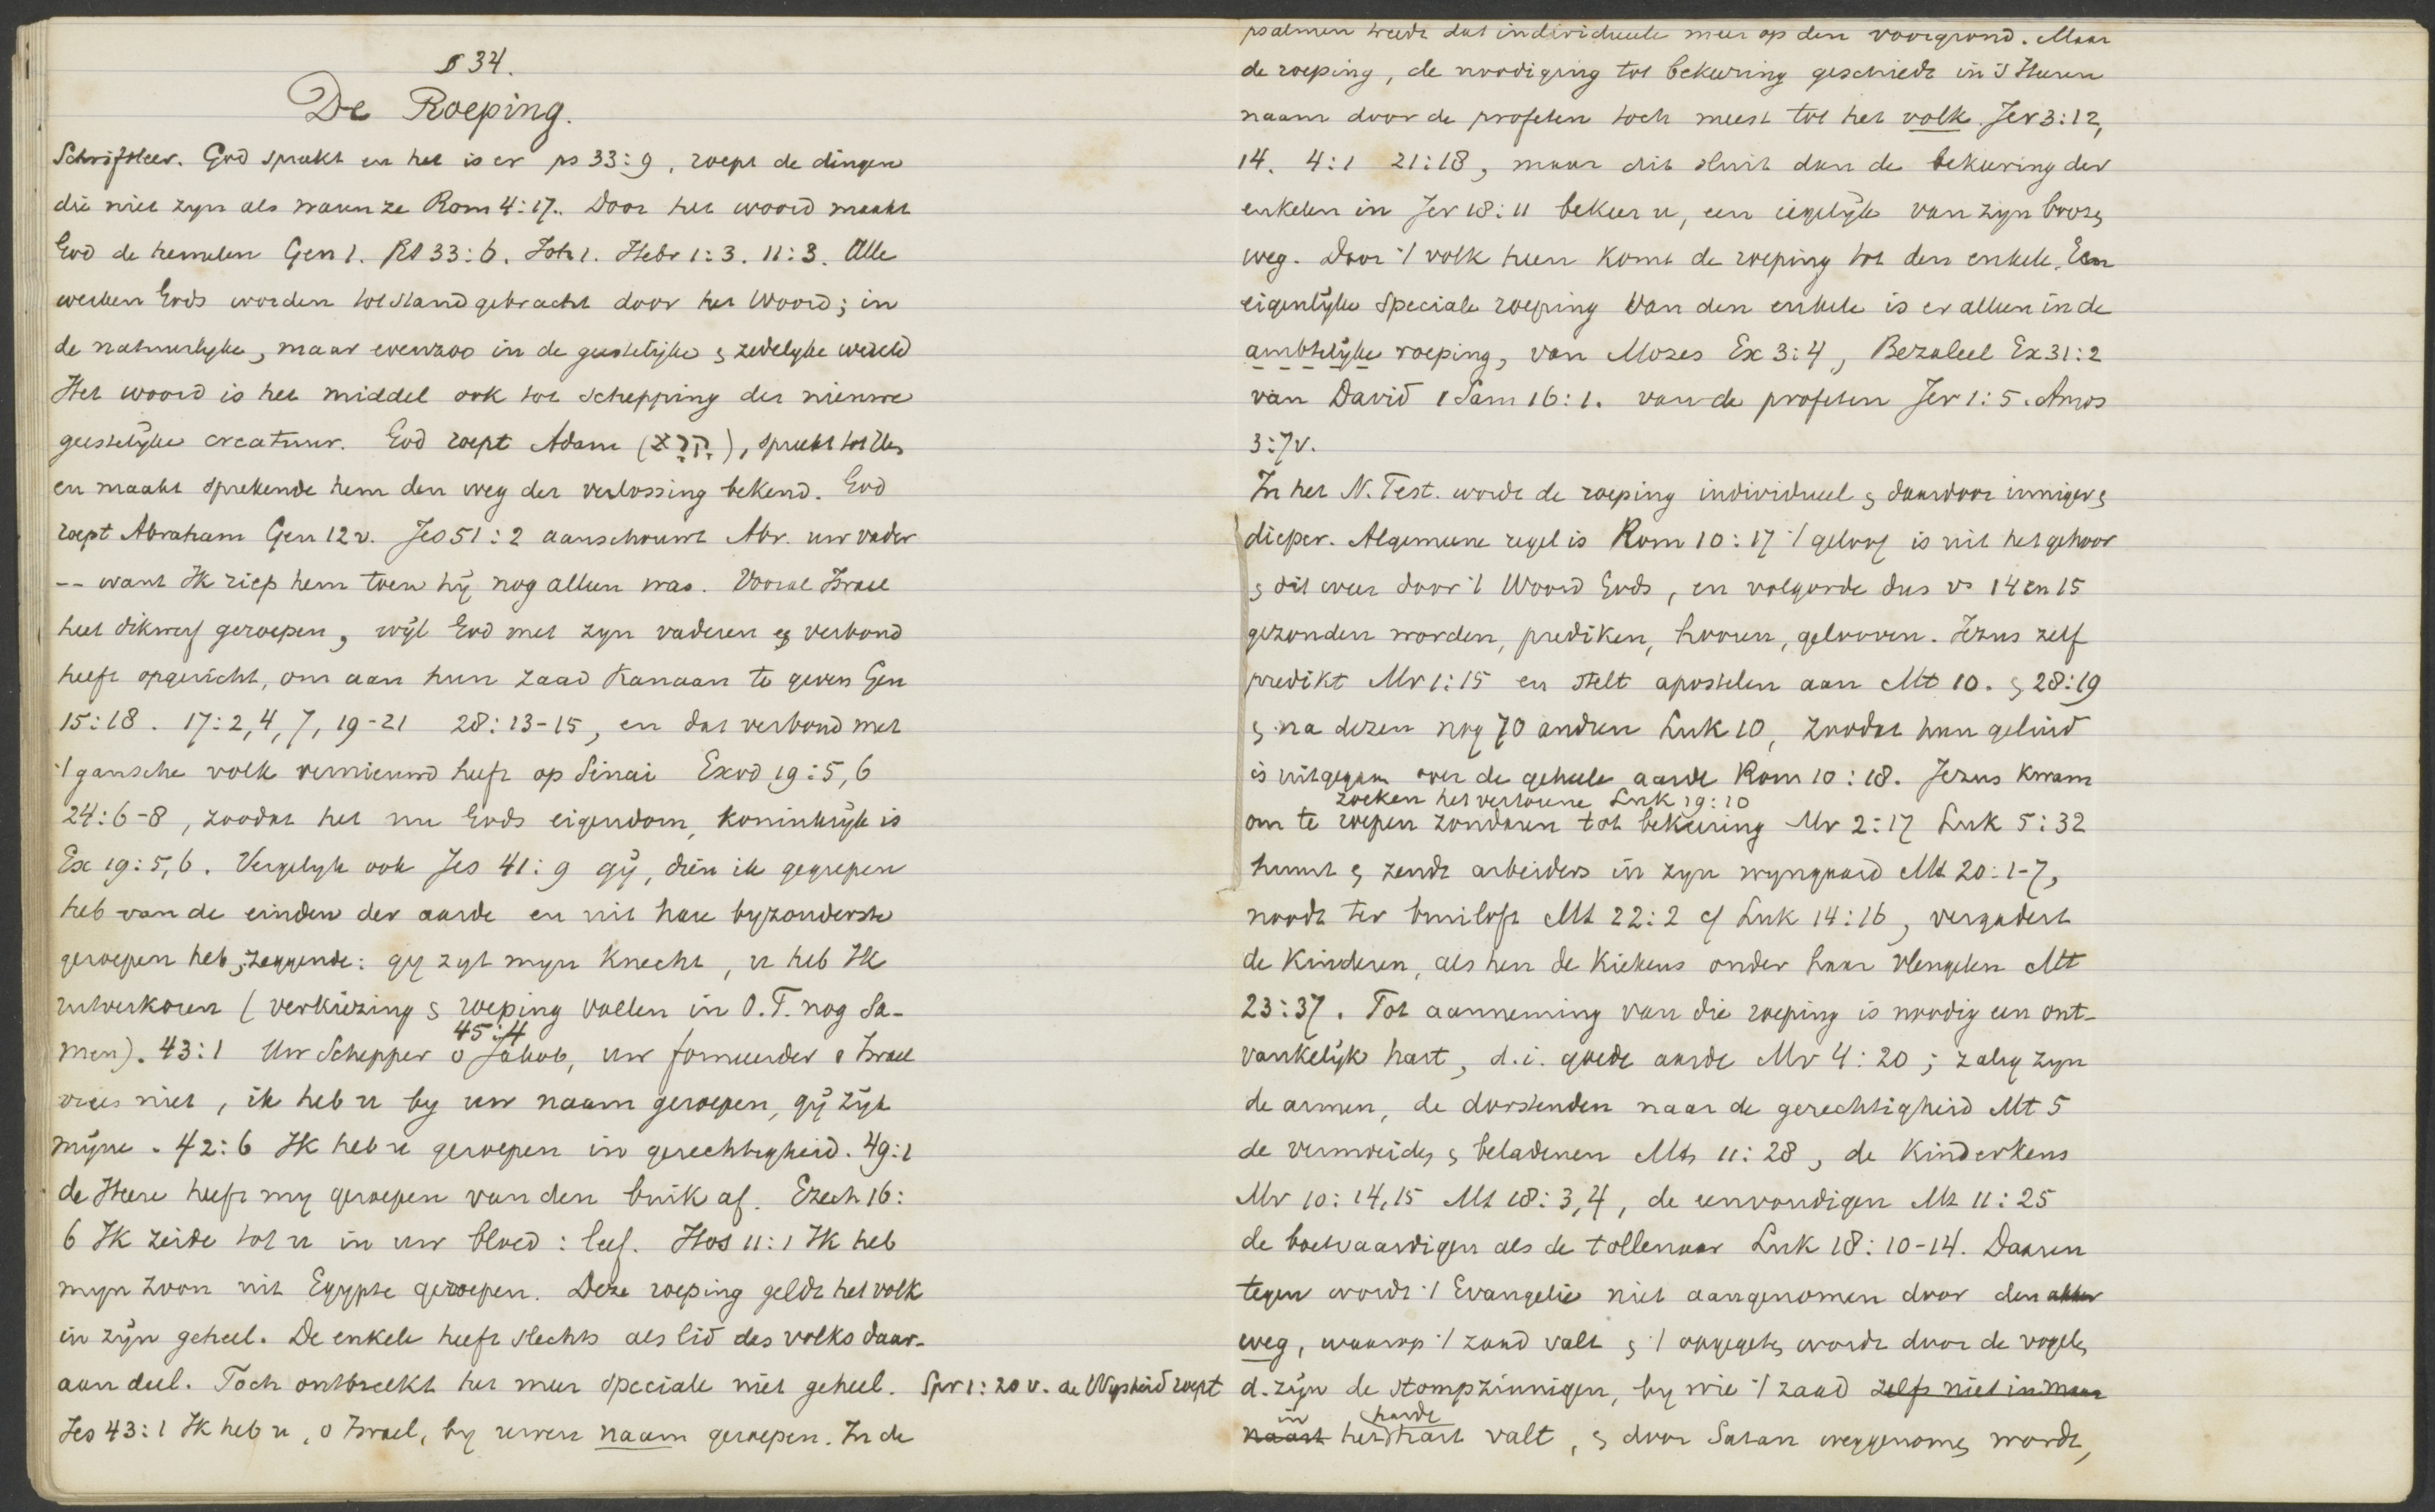 § 34.
De Roeping.
Schriftleer. God spreekt en het is er ps 33:9, roept de dingen
die niet zyn als waren ze Rom 4:17. Door het woord maakt
God de hemelen Gen 1. Ps 33:6. Joh 1. Hebr 1:3. 11:3. Alle
werken Gods worden tot stand gebracht door het Woord; in
de natuurlyke, maar evenzoo in de geestelijke & zedelyke wereld
Het woord is het middel ook tot schepping der nieuwe
geestelijke creatuur. God roept Adam (קרא), spreekt tot
en maakt sprekende hem den weg der verlossing bekend. God
roept Abraham Gen 12v. Jes 51:2 aanschouwt Abr. uw vader
-- want Ik riep hem toen hij nog alleen was. Vooral Israel
heet dikwerf geroepen, wijl God met zyn vaderen verbond
heeft opgericht, om aan hun zaad Kanaan te geven Gen
15:18. 17:2,4,7,19-21 28:13-15, en dat verbond met
't gansche volk vernieuwd heeft op Sinai Exod 19:5,6
24:6-8, zoodat het nu Gods eigendom, koninkrijk is
Ex 19:5,6. Vergelyk ook Jes 41:9 gij, dien ik gegrepen
heb van de einden der aarde en uit hare byzonderste
geroepen heb, zeggende: gy zyt myn Knecht, u heb Ik
uitverkoren (verkiezing & roeping vallen in O.T. nog sa-
45:4
men). 43:1 Uw Schepper o Jakob, uw formeerder o Israel
vrees niet, ik heb u by uw naam geroepen, gij zijt
mijne. 42:6 Ik heb u geroepen in gerechtigheid. 49:1
de Heere heeft my geroepen van den buik af. Ezech 16:
6 Ik zeide tot u in uw bloed: leef. Hos 11:1 Ik heb
myn zoon uit Egypte geroepen. Deze roeping geldt het volk
in zijn geheel. De enkele heeft slechts als lid des volks daar-
aan deel. Toch ontbreekt het meer speciale niet geheel. Spr 1:20 v. de Wysheid roept
Jes 43:1 Ik heb u, o Israel, by uwen naam geroepen. In de
psalmen treedt dat individueele meer op den voorgrond. Maar
de roeping, de noodiging tot bekeering geschiedt in 's Heeren
naam door de profeten toch meest tot het volk. Jer 3:12,
14. 4:1 21:18, maar dit sluit dan de bekeering der
enkelen in Jer 18:11 bekeer u, een iegelijk van zijn booze
weg. Door 't volk heen komt de roeping tot den enkele. Een
eigenlijke speciale roeping van den enkele is er alleen in de
ambtelijke roeping, van Mozes Ex 3:4, Bezaleel Ex 31:2
van David 1 Sam 16:1. van de profeten Jer 1:5. Amos
3:7v.
In het N. Test. wordt de roeping individueel & daardoor inniger &
dieper. Algemeene regel is Rom 10:17 't geloof is uit het gehoor
& dit weer door 't Woord Gods, en volgorde dus vs 14 en 15
gezonden worden, prediken, hooren, gelooven. Jezus zelf
predikt Mr 1:15 en stelt apostelen aan Mt 10. & 28:19
& na dezen nog 70 andren Luk 10, zoodat hun geluid
is uitgegaan over de geheele aarde Rom 10:18. Jezus kwam
zoeken het verlorene Luk 19:10
om te roepen zondaren tot bekeering Mr 2:17 Luk 5:32
huurt & zendt arbeiders in zyn wyngaard Mt 20:1-7,
noodt ter bruiloft Mt 22:2 cf Luk 14:16, vergadert
de Kinderen, als hen de Kiekens onder haar vleugelen Mt
23:37. Tot aanneming van die roeping is noodig een ont-
vankelijk hart, d.i. goede aarde Mr 4:20; zalig zyn
de armen, de dorstenden naar de gerechtigheid Mt 5
de vermoeiden & beladenen Mt 11:28, de Kinderkens
Mr 10:14,15 Mt 18:3,4, de eenvoudigen Mt 11:25
de boetvaardigen als de tollenaar Luk 18:10-14. Daaren
tegen wordt 't Evangelie niet aangenomen door den akker
weg, waarop 't zaad valt & 't opgegeten wordt door de vogelen
d. zijn de stompzinnigen, by wie 't zaad zelfs niet in maar
in harde
naast het hart valt, & door Satan weggenomen wordt,